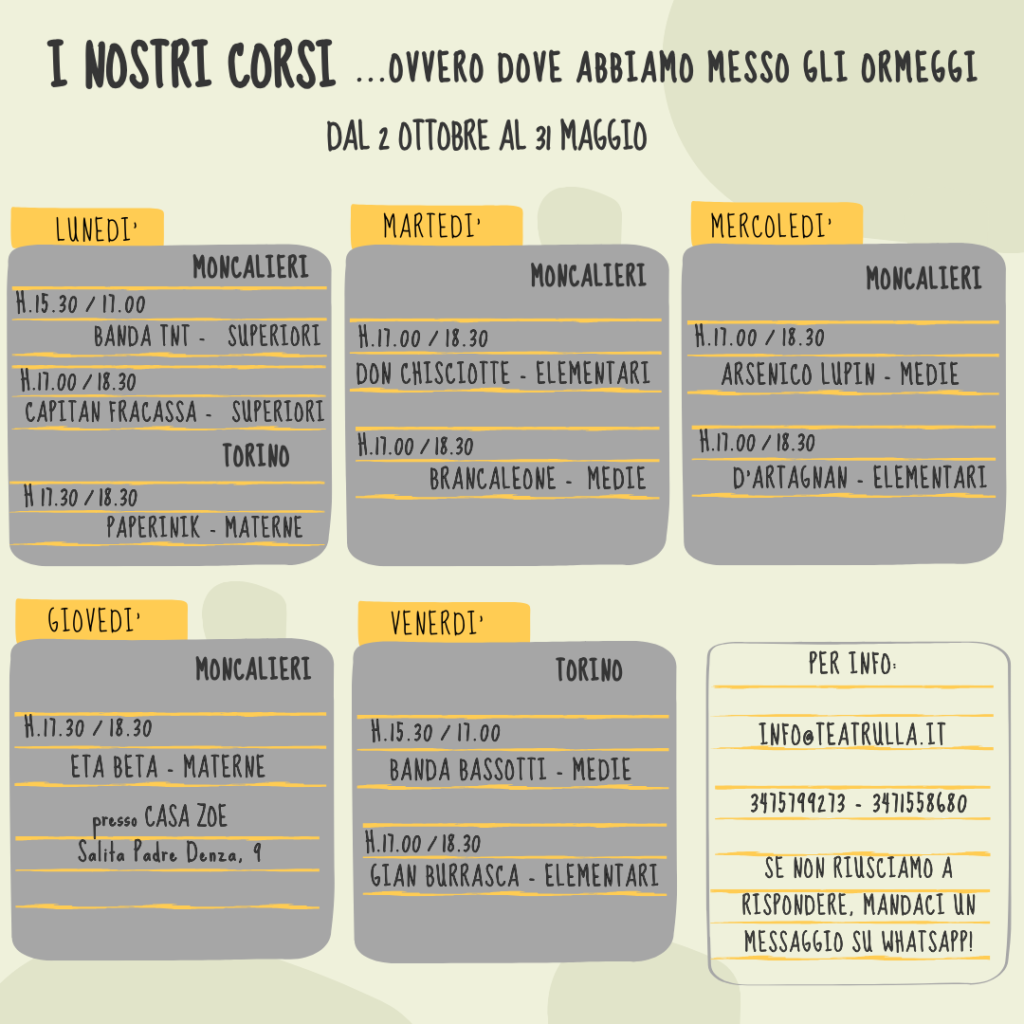 I NOSTRI CORSI ...OVVERO DOVE ABBIAMO MESSO GLI ORMEGGI
DAL 2 OTTOBRE AL 31 MAGGIO
LUNEDI'
MONCALIERI
H.15.30 / 17.00
BANDA TNT - SUPERIORI
H.17.00 / 18.30
CAPITAN FRACASSA - SUPERIORI
TORINO
H 17.30 / 18.30
PAPERINIK - MATERNE
MARTEDI'
MONCALIERI
H.17.00 / 18.30
DON CHISCIOTTE - ELEMENTARI
H.17.00 / 18.30
BRANCALEONE - MEDIE
MERCOLEDI'
MONCALIERI
H.17.00 / 18.30
ARSENICO LUPIN - MEDIE
H.17.00 / 18.30
D'ARTAGNAN - ELEMENTARI
GIOVEDI'
MONCALIERI
H.17.30 / 18.30
ETA BETA - MATERNE
presso CASA ZOE
Salita Padre Denza, 9
VENERDI'
TORINO
H.15.30 / 17.00
BANDA BASSOTTI - MEDIE
H.17.00 / 18.30
GIAN BURRASCA - ELEMENTARI
PER INFO:
INFO@TEATRULLA.IT
3475799273 - 3471558680
SE NON RIUSCIAMO A
RISPONDERE, MANDACI UN
MESSAGGIO SU WHATSAPP!